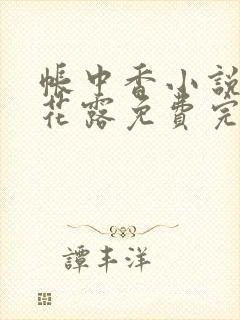 帳中香小說
花露免費完
譚丰洋